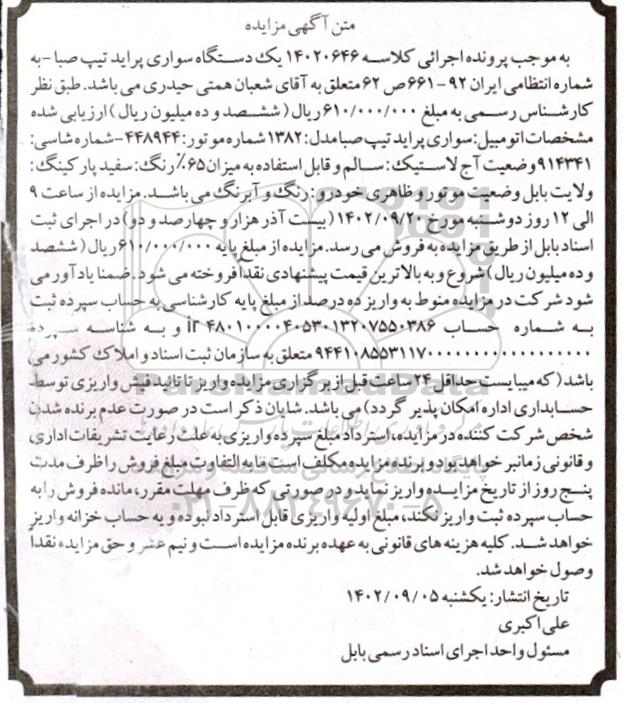 متن آگهی مزایده
به موجب پرونده اجرائی کلاسه ۱۴۰۲۰۶۴۶ یک دستگاه سواری پراید تیپ صبا - به
شماره انتظامی ایران ۹۲ - ۶۶۱ ص ۶۲ متعلق به آقای شعبان همتی حیدری می باشد. طبق نظر
کارشناس رسمی به مبلغ ۶۱۰/۰۰۰/۰۰۰ ریال (ششصد و ده میلیون ریال) ارزیابی شده
مشخصات اتومبیل: سواری پراید تیپ صبا مدل: ۱۳۸۲ شماره موتور: ۴۴۸۹۴۴ - شماره شاسی:
۹۱۴۳۴۱ وضعیت آج لاستیک: سالم و قابل استفاده به میزان ۶۵٪ رنگ: سفید پارکینگ:
ولایت بابل وضعیت موتور و ظاهری خودرو: رنگ و آبرنگ می باشد. مزایده از ساعت ۹
الی ۱۲ روز دوشنبه مورخ ۱۴۰۲/۰۹/۲۰ (بیست آذر هزار و چهارصد و دو) در اجرای ثبت
اسناد بابل از طریق مزایده به فروش می رسد. مزایده از مبلغ پایه ۶۱۰/۰۰۰/۰۰۰ ریال (ششصد
و ده میلیون ریال) شروع و به بالاترین قیمت پیشنهادی نقداً فروخته می شود. ضمنا یادآور می
شود شرکت در مزایده منوط به واریز ده درصد از مبلغ پایه کارشناسی به حساب سپرده ثبت
به شماره حساب ir ۴۸۰۱۰۰۰۰۴۰۵۳۰۱۳۲۰۷۵۵۰۳۸۶ و به شناسه سپرده
۹۴۴۱۰۸۵۵۳۱۱۷۰۰۰۰۰۰۰۰۰۰۰۰۰۰۰۰۰ متعلق به سازمان ثبت اسناد و املاک کشور می
باشد (که میبایست حداقل ۲۴ ساعت قبل از برگزاری مزایده واریز تا تائید فیش واریزی توسط
حسابداری اداره امکان پذیر گردد) می باشد. شایان ذکر است در صورت عدم برنده شدن
شخص شرکت کننده در مزایده، استرداد مبلغ سپرده واریزی به علت رعایت تشریفات اداری،
و قانونی زمانبر خواهد بود و برنده مزایده مکلف است مابه التفاوت مبلغ فروش را ظرف مدت
پنج روز از تاریخ مزایده واریز نماید و در صورتی که ظرف مهلت مقرر، مانده فروش را به
حساب سپرده ثبت واریز نکند، مبلغ اولیه واریزی قابل استرداد نبوده و به حساب خزانه واریز
خواهد شد. کلیه هزینه های قانونی به عهده برنده مزایده است و نیم عشر و حق مزایده نقدا
وصول خواهد شد.
تاریخ انتشار: یکشنبه ۱۴۰۲/۰۹/۰۵
علی اکبری
مسئول واحد اجرای اسناد رسمی بابل
ParsNamadData
۰۲۱-۸۸۳۴۹۶۷۰-۵